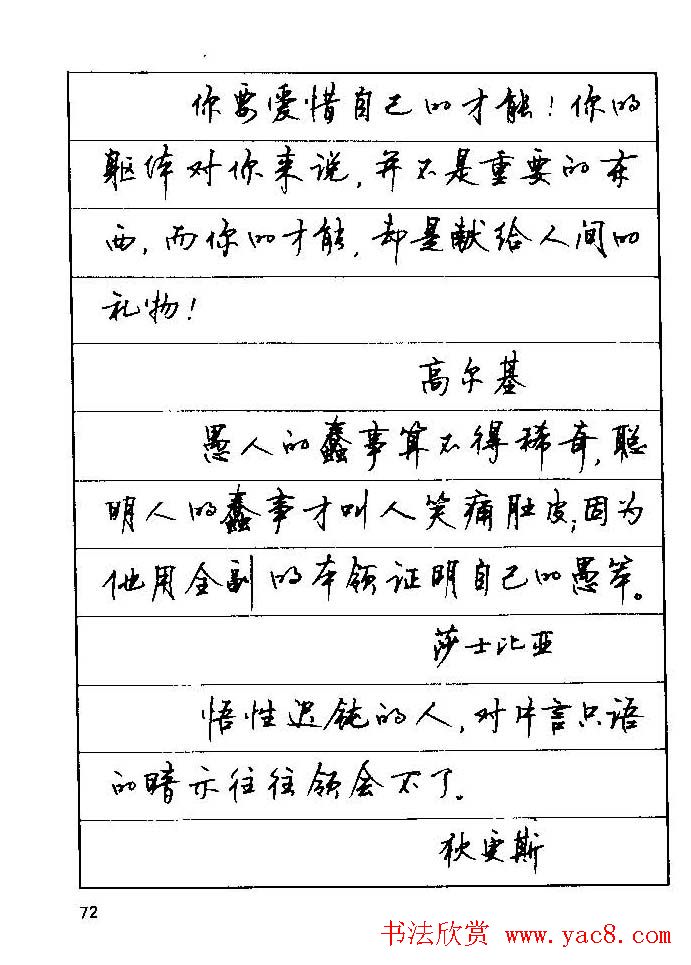 你要爱惜自己的才能！你的
躯体对你来说，并不是重要的东
西，而你的才能，却是献给人间的
礼物！
高尔基
愚人的蠢事算不得稀奇，聪
明人的蠢事才叫人笑痛肚皮；因为
他用全副的本领证明自己的愚笨。
莎士比亚
悟性迟钝的人，对片言只语
的暗示往往领会不了。
狄更斯
72
书法欣赏 www.yac8.com